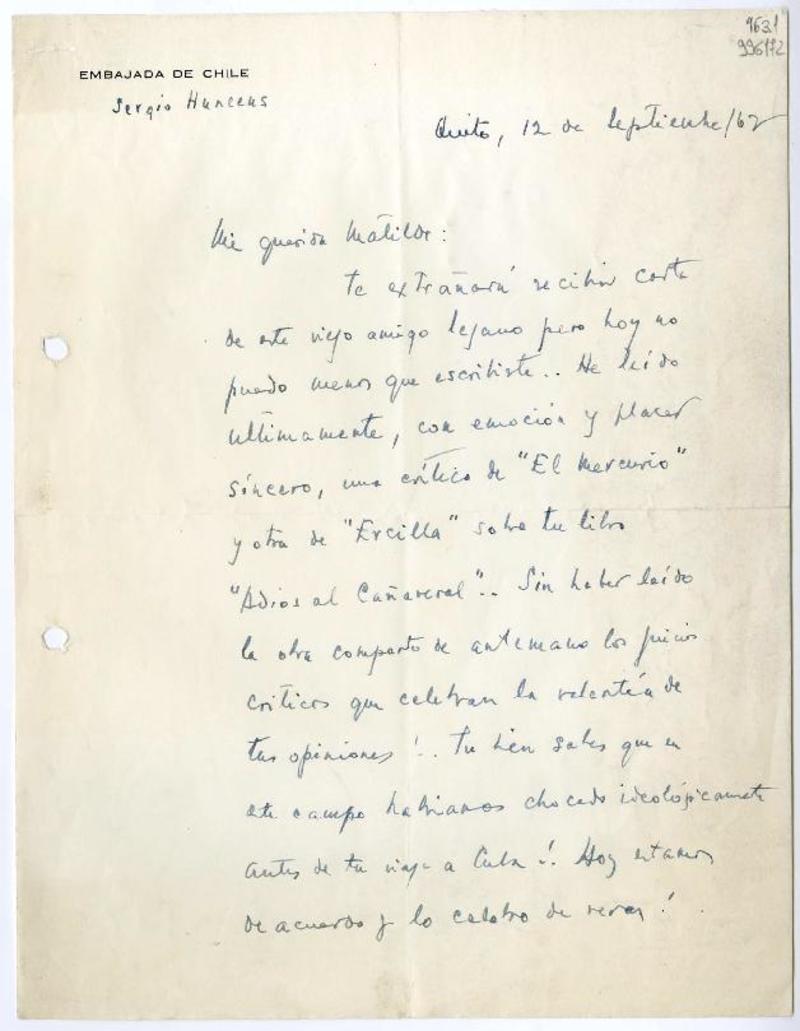 9631
996172
EMBAJADA DE CHILE
Sergio Huneeus
Quito, 12 de Septiembre/62
Mi querida Matilde:
Te extrañará recibir carta
de este viejo amigo lejano pero hoy no
puedo menos que escribirte.. He leído
ultimamente, con emoción y placer
sincero, una crítica de "El Mercurio"
y otra de "Ercilla" sobre tu libro
"Adios al Cañaveral".. Sin haber leído
la obra comparto de antemano los juicios
criticos que celebran la valentía de
tus opiniones!.. Tu bien sabes que en
este campo habiamos chocado ideológicamente
antes de tu viaje a Cuba!. Hoy estamos
de acuerdo y lo celebro de veras!..